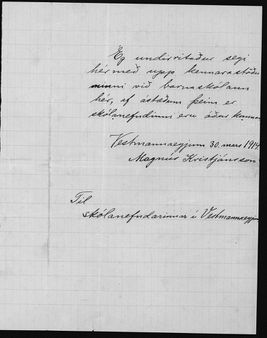 Eg undirritaður segi
hér með upp kennarastöðu
minni við barnaskólann
hér, af ástæðum þeim er
skólanefndinni eru áður kunnar
Vestmannaeyjum 30. mars 1914
Magnús Kristjánsson
Til
skólanefndarinnar í Vestmannaeyjum